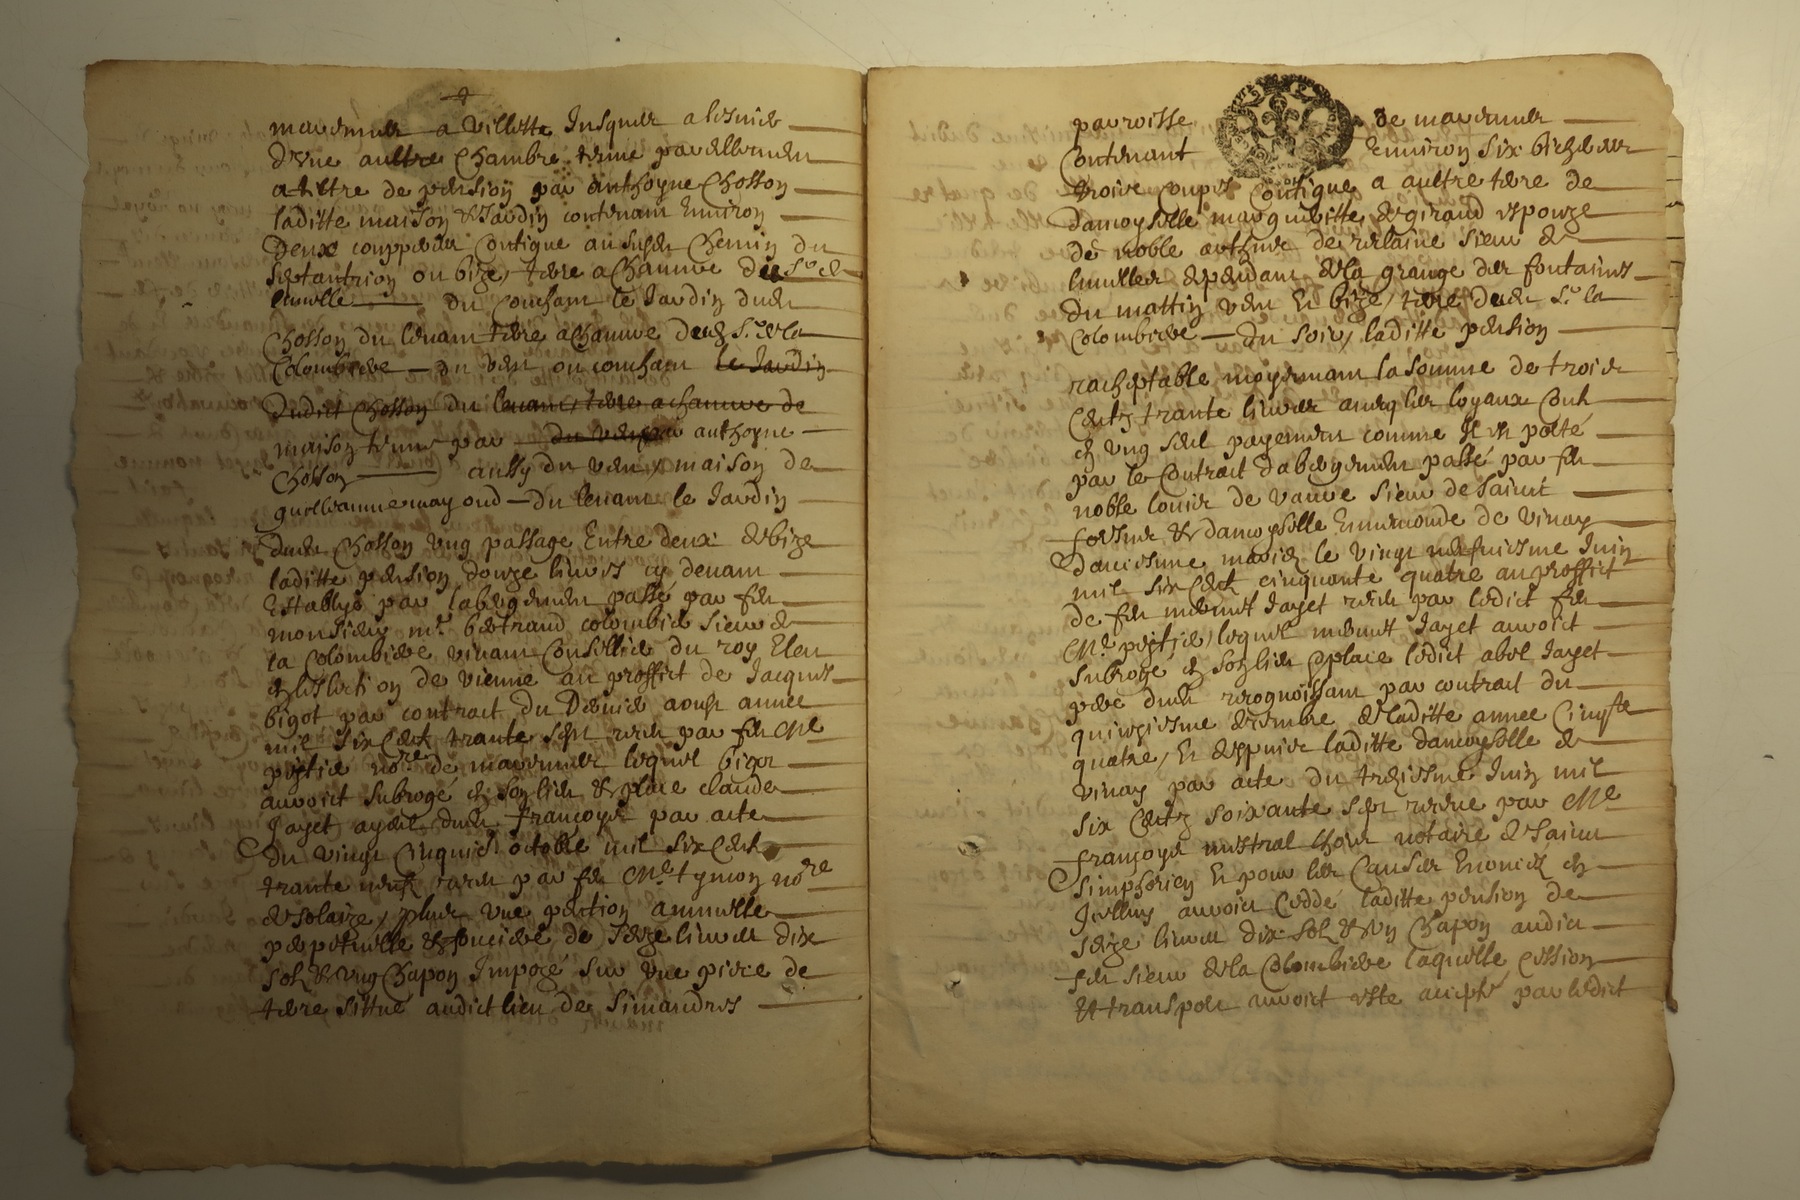 marennes a Villette Jusques a lesnier
d'vne aultre Chambre tenue parellemen
a tiltre de pension par anthoyne Chosson
laditte maison & Jardin contenant Environ
deux couppees Contigue au susdit Chemin du
septantrion ou bize, terre a Chanure du Sr de
du Couchant le Jardin dudit
Chosson du leuant terre a Chanure dudit Sr de la
Colombiere — du vent ou couchant le Jardin
Dudict Chosson du leuant, terre a chanure de
maison tenue par du vent par anthoyne
Chosson aussy du vent, maison de
du leuant le Jardin
dudit Chosson vng passage Entre deux de bize
laditte pension douze liures cy deuant
Establye par labergement passé par feu
monsieur mre bertrand colombier sieur de
la Colombiere viuant Conseillier du roy Eleu
En leslection de vienne au proffict de Jacques
bigot par contract du Dernier aoust annee
mil six Cent trante sept receu par feu Me
notre de marennes lequel bigot
auroict subrogé En son lieu & place claude
Jayet ayeul dudit françoys par acte
du vingt Cinquie octobre mil six Cent
trante neuf receu par feu Me tymon notre
de solaize, plus vne pention annuelle
perpetuelle & fonciere de seize liures dix
solz & vng Chapon Imposé sur vne piece de
terre sittué audict lieu de simandres
parroisse de marennes
Contenant Enuiron six bicherees
trois coupes Contigue a aultre terre de
damoyselle marguerite de giraud espouze
de noble arthur de relaine sieur de
dependant de la grange des fontaines
du mattin vent Et bize, terre dudit Sr la
Colombiere — du soir, laditte pension
racheptable moyennant la somme de trois
Centz trante liures auecq les loyaux Coutz
En vng seul payement comme Il est porté
par le Contract dabergement passé par feu
noble louis de vaure sieur de saint
& damoyselle Ennemonde de vinay
mariez le vingt neufuiesme Juin
mil six Cent cinquante quatre au proffict
de feu Jayet receu par ledict feu
Me lequel Jayet auroict
subrogé En son lieu & place ledict abel Jayet
pere dudit recognoissant par contract du
quinziesme decembre de laditte annee Cinqte
quatre, Et depuis laditte damoyselle de
vinay par acte du treziesme Juin mil
six Centz soixante sept receue par Me
françoys mistral notaire de saint
simphorien Et pour les Causes Enoncez En
Jcelluy auroict Ceddé laditte pension de
seize liures dix solz & vn Chapon audict
feu sieur de la Colombiere laquelle cession
& transport auroict esté accepté par ledict